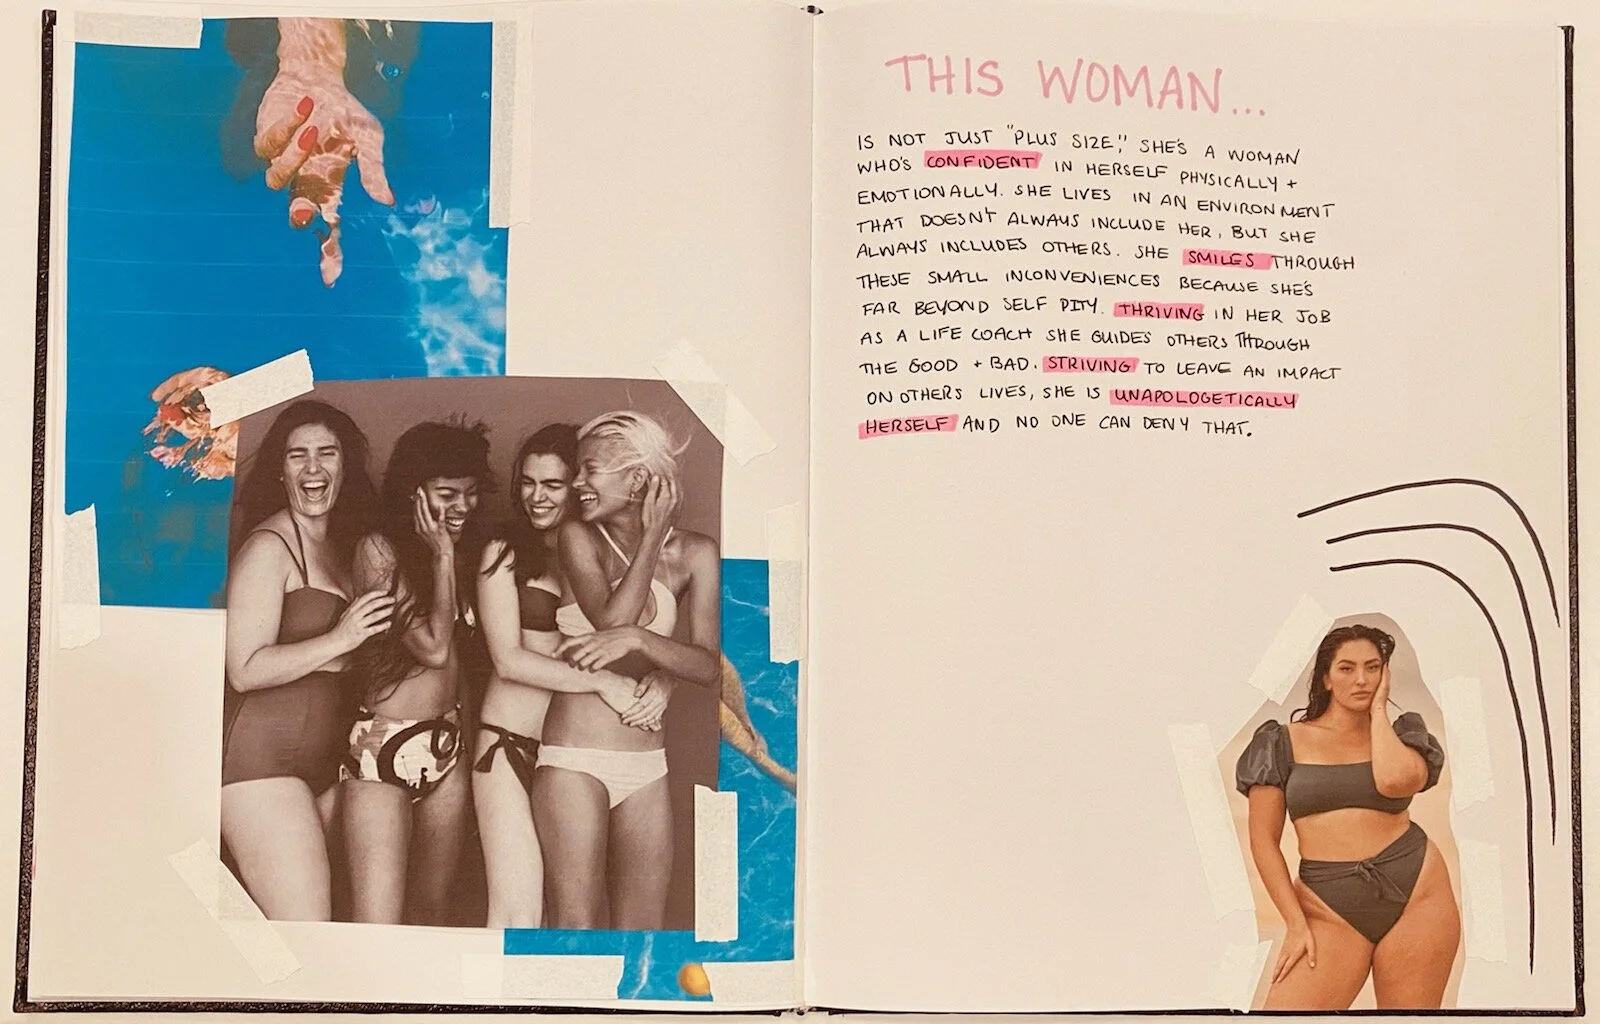 THIS WOMAN...
IS NOT JUST "PLUS SIZE," SHE'S A WOMAN
WHO'S CONFIDENT IN HERSELF PHYSICALLY +
EMOTIONALLY. SHE LIVES IN AN ENVIRONMENT
THAT DOESN'T ALWAYS INCLUDE HER, BUT SHE
ALWAYS INCLUDES OTHERS. SHE SMILES THROUGH
THESE SMALL INCONVENIENCES BECAUSE SHE'S
FAR BEYOND SELF PITY. THRIVING IN HER JOB
AS A LIFE COACH SHE GUIDES OTHERS THROUGH
THE GOOD + BAD. STRIVING TO LEAVE AN IMPACT
ON OTHERS LIVES, SHE IS UNAPOLOGETICALLY
HERSELF AND NO ONE CAN DENY THAT.